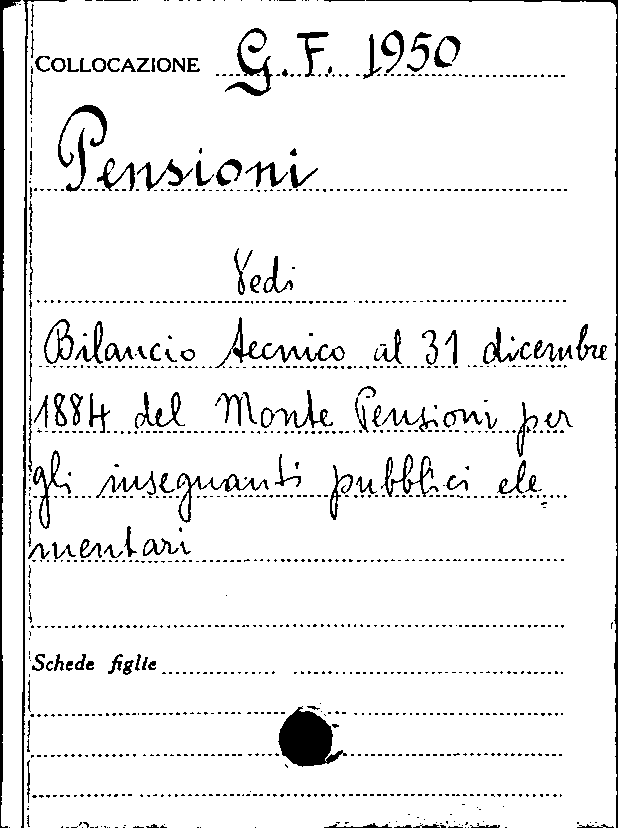 COLLOCAZIONE G. F. 1950
Pensioni
Vedi
Bilancio tecnico al 31 dicembre
1884 del Monte Pensioni per
gli insegnanti pubblici ele=
mentari
Schede figlie